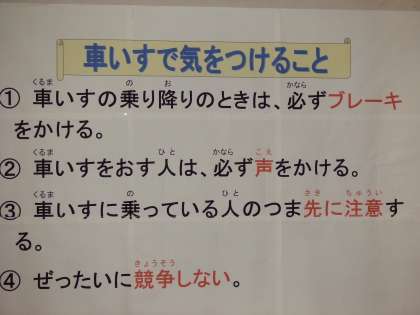 車いすで気をつけること
① 車いすの乗り降りのときは、必ずブレーキ
をかける。
② 車いすをおす人は、必ず声をかける。
③ 車いすに乗っている人のつま先に注意す
る。
④ ぜったいに競争しない。